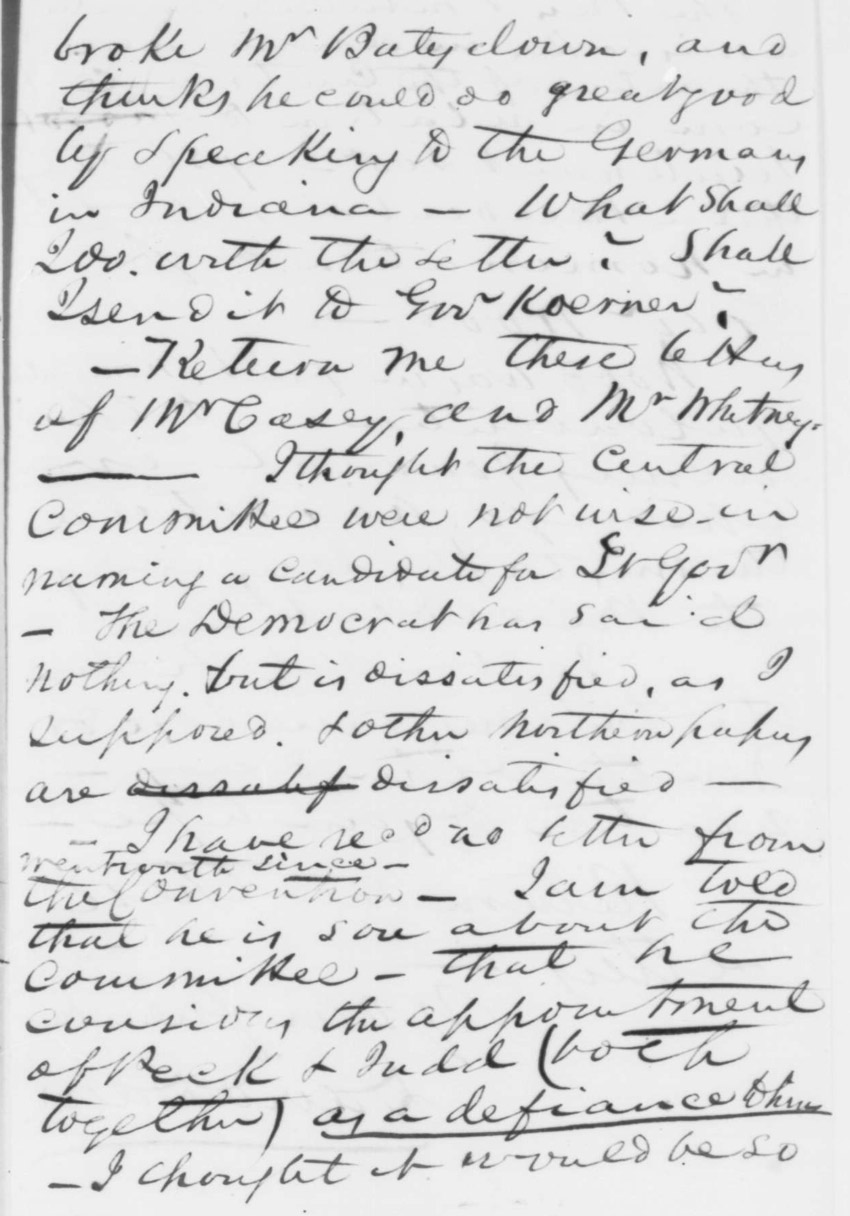 broke Mr Bates down, and
thinks he could do great good
by speaking to the Germans
in Indiana — What shall
I do. with the letter? Shall
I send it to Govr Koerner?
— Return me these letters
of Mr Casey, and Mr Whitney.
— I thought the Central
Committee were not wise in
naming a candidate for Lt Govr
— The Democrat has said
nothing. but is dissatisfied, as I
supposed. & other Northern papers
are dissatisf dissatisfied —
— I have recd no letter from
Wentworth since —
the Convention — I am told
that he is sore about the
Committee — that he
considers the appointment
of Peck & Judd (both
together) as a defiance to him
— I thought it would be so